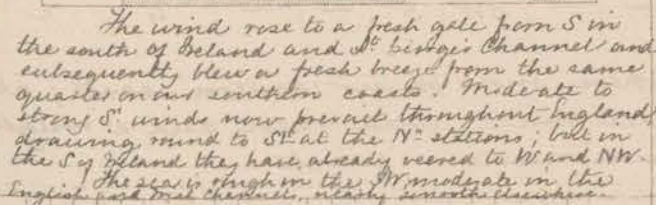 The wind rose to a fresh gale from S in
the south of Ireland and St. George's Channel and
subsequently blew a fresh breeze from the same
quarter on our southern coasts. Moderate to
strong S'. winds now prevail throughout England,
drawing round to SE. at the Nn. stations; but in
the S of Ireland they have already veered to W and NW.
The sea is rough in the SW, moderate in the
English and Irish Channels, nearly smooth elsewhere.